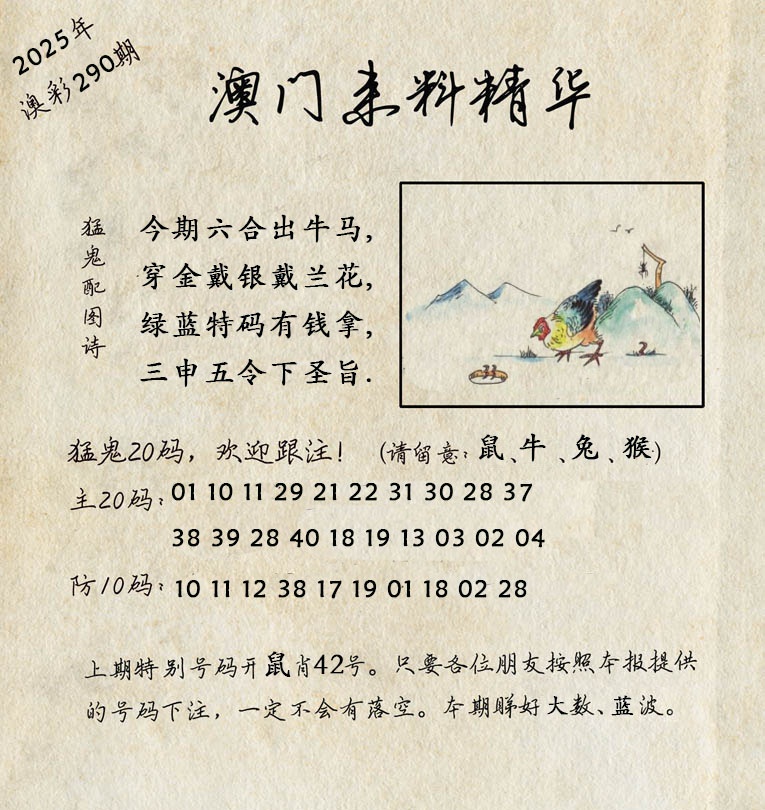 2025年
澳彩290期
澳门来料精华
猛鬼配图诗
今期六合出牛马,
穿金戴银戴兰花,
绿蓝特码有钱拿,
三申五令下圣旨.
33
2
猛鬼20码，欢迎跟注！（请留意：鼠、牛、兔、猴）
主20码：01 10 11 29 21 22 31 30 28 37
38 39 28 40 18 19 13 03 02 04
防10码：10 11 12 38 17 19 01 18 02 28
上期特别号码开鼠肖42号。只要各位朋友按照本报提供
的号码下注，一定不会有落空。本期睇好大数、蓝波。